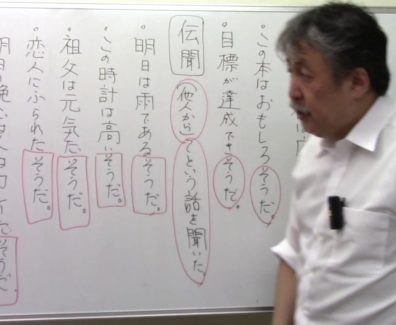 ・この本はおもしろそうだ。
・目標が達成できそうだ。
伝聞 (他人から)〜という話を聞いた。
・明日は雨であるそうだ。
・この時計は高いそうだ。
・祖父は元気だそうだ。
・恋人にふられたそうだ。
そうだ。